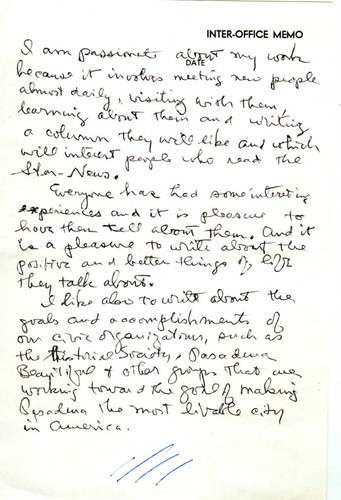 INTER-OFFICE MEMO
DATE
I am passionate about my work
because it involves meeting new people
almost daily, visiting with them,
learning about them and writing
a column they will like and which
will interest people who read the
Star-News.
Everyone has had some interesting
experiences and it is pleasure to
have them tell about them. And it
is a pleasure to write about the
positive and better things of life
they talk about.
I like also to write about the
goals and accomplishments of
our civic organizations, such as
the Historical Society, Pasadena
Beautiful & other groups that are
working toward the goal of making
Pasadena the most livable city
in America.